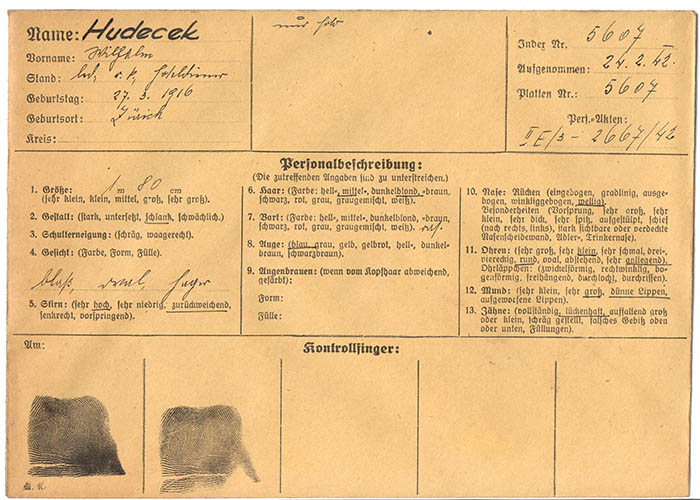 Name: Hudecek
Vorname: Wilhelm
Stand: led.
Geburtstag: 27. 3. 1916
Geburtsort: Zürich
Kreis:
nur
Index Nr. 5607
Aufgenommen: 24. 2. 42.
Platten Nr.: 5607
Pers.-Akten:
II E/3 - 2667/42
Personalbeschreibung:
(Die zutreffenden Angaben sind zu unterstreichen.)
1. Größe: 1 m 80 cm
(sehr klein, klein, mittel, groß, sehr groß).
2. Gestalt: (stark, untersetzt, schlank, schwächlich.)
3. Schulterneigung: (schräg, waagerecht).
4. Gesicht: (Farbe, Form, Fülle).
blaß, oval, hager
5. Stirn: (sehr hoch, sehr niedrig, zurückweichend,
senkrecht, vorspringend).
6. Haar: (Farbe: hell-, mittel-, dunkelblond, -braun,
schwarz, rot, grau, graugemischt, weiß).
7. Bart: (Farbe: hell-, mittel-, dunkelblond, -braun,
schwarz, rot, grau, graugemischt, weiß).
8. Auge: (blau, grau, gelb, gelbrot, hell-, dunkel-
braun, schwarzbraun).
9. Augenbrauen: (wenn vom Kopfhaar abweichend,
gefärbt):
Form:
Fülle:
10. Nase: Rücken (eingebogen, gradlinig, ausge-
bogen, winkliggebogen, wellig).
Besonderheiten (Vorsprung, sehr groß, sehr
klein, sehr dick, sehr spitz, aufgestülpt, schief
(nach rechts, links), stark sichtbare oder verdeckte
Nasenscheidewand, Adler-, Trinkernase).
11. Ohren: (sehr groß, sehr klein, sehr schmal, drei-,
viereckig, rund, oval, abstehend, sehr anliegend).
Ohrläppchen: (zwickelförmig, rechtwinklig, bo-
genförmig, freihängend, durchlocht, durchrissen).
12. Mund: (sehr klein, sehr groß, dünne Lippen,
aufgeworfene Lippen).
13. Zähne: (vollständig, lückenhaft, auffallend groß
oder klein, schräg gestellt, falsches Gebiß oben
oder unten, Füllungen).
Am:
Kontrollfinger: